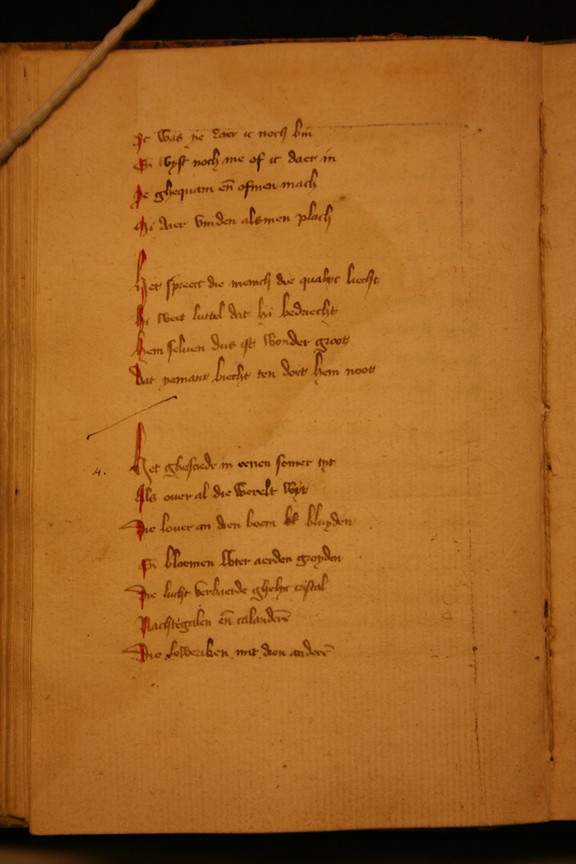 Ic was ye daer ic noch bin
En wyst noch me of ic daer in
Ye ghequam en̄ of men mach
Mi daer vinden alsmen plach
Het spreect die mensch die qualyc liecht
Hi weet luttel dat hi bedriecht
Hem seluen dus ist wonder groot
Dat yemant liecht ten doet hem noot
4. Het ghesciede in eenen somer tyt
Als ouer al die werelt wyt
Die louer an dien boem bluyden
En bloemen wter aerden groyden
Die lucht verbaerde ghelyc cristal
Nachtegalen en̄ calanderē
Die leweriken mit dien anderē